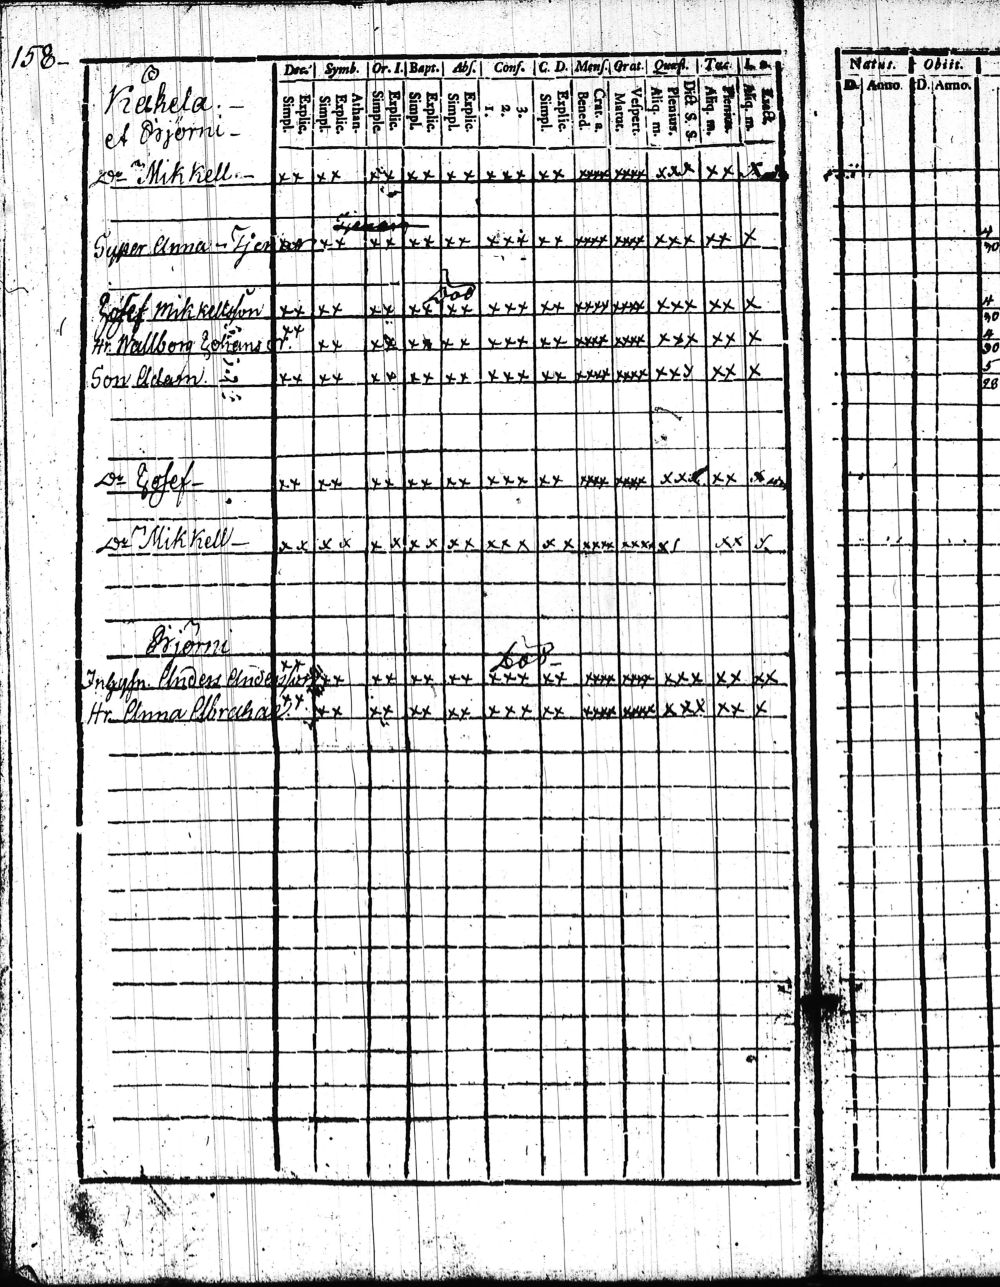 158-
Dec. Symb. Or. I. Bapt. Abs. Conf. C. D. Mens. Grat. Quæst. Tac. Natus. Obiit.
Simpl. Explic. Simpl. Explic. Athan. Simpl. Explic. Simpl. Explic. Simpl. Explic. 1. 2. 3. Simpl. Explic. Bened. Grat. a. Matut. Vespert. Aliq. m. Plenius. Dict. S. S. Aliq. m. Plenius. Aliq. m. Exact D. Anno. D. Anno.
Kakela.-
et Björni-
Dr Mikkell.- xx xx xx xx xx xxx xx xxxx xxxx xxx xx x
Anna - xx xx xx xx xxx xx xxxx xxxx xxx xx x 4
30
död
Josef Mikkellsson xx xx xx xx xx xxx xx xxxx xxxx xxx xx x 4
30
Hr. Wallborg xx xx xx xx xx xxx xx xxxx xxxx xxx xx x 4
30
Son Adam. xx xx xx xx xx xxx xx xxxx xxxx xxx xx x 5
28
Dr Josef- xx xx xx xx xx xxx xx xxxx xxxx xxx xx x
Dr Mikkell- xx xx xx xx xx xxx xx xxxx xxxx xx x
Björni
död-
Anders Andersson xx xx xx xx xx xxx xx xxxx xxxx xxx xx xx
Hr. Anna xx xx xx xx xx xxx xx xxxx xxxx xxx xx x